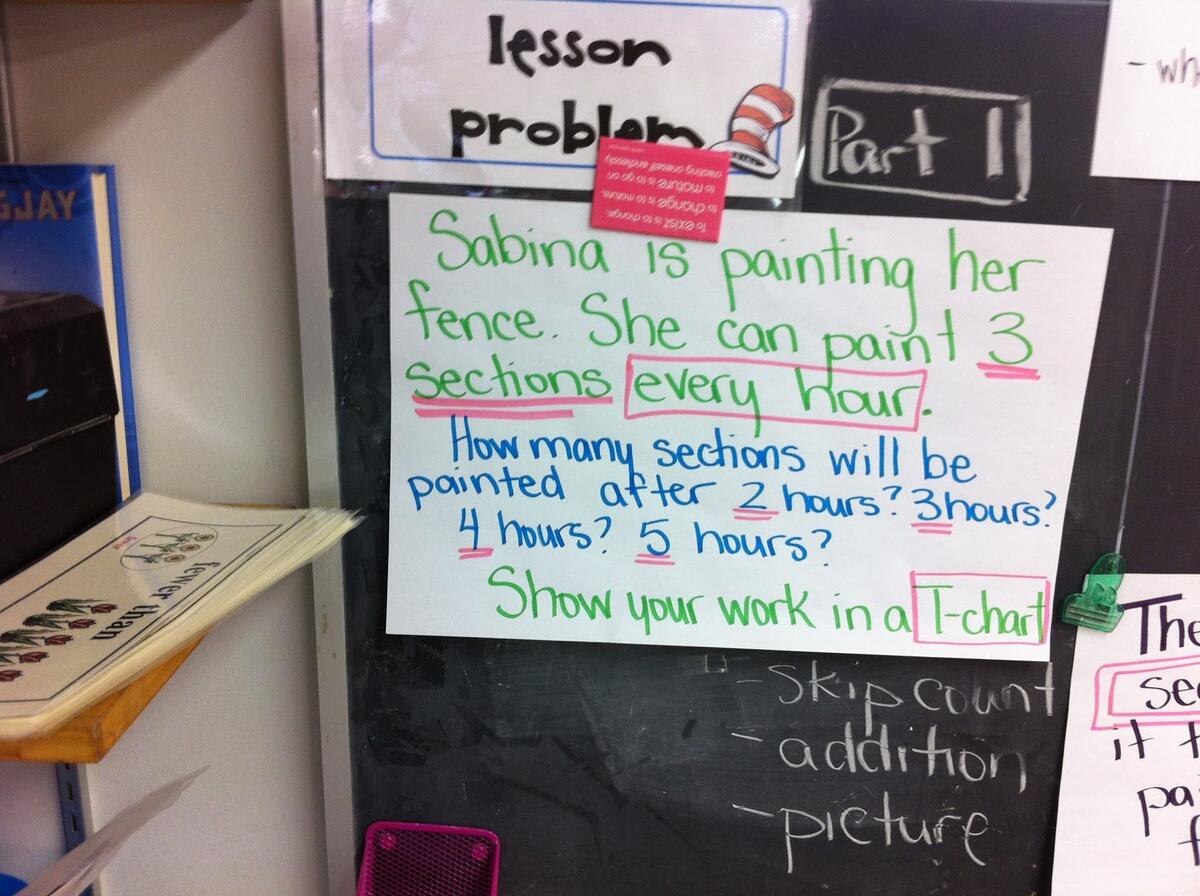 lesson
problem
Part 1
- wh
To exist is to change,
to change is to mature,
to mature is to go on
creating oneself endlessly
Sabina is painting her
fence. She can paint 3
sections every hour.
How many sections will be
painted after 2 hours? 3 hours?
4 hours? 5 hours?
Show your work in a T-chart
- skip count
- addition
- picture
GJAY
fewer than
The
sec
it t
pa
f